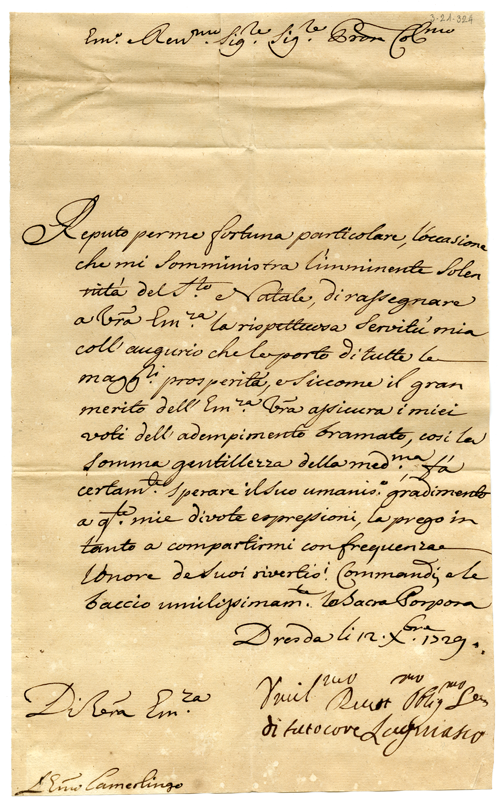 3-21-324
Em.o e Rev.mo Sig.re Sig.re Pron Col.mo
Reputo per me fortuna particolare, l'occasione
che mi somministra l'imminente solen
nità del S.to Natale, di rassegnare
a V.ra Em.za la rispettuosa servitù mia
coll'augurio che le porto di tutte le
magg.ri prosperità, e siccome il gran
merito dell'Em.za V.ra assicura i miei
voti dell'adempimento bramato, così la
somma gentillezza della med.ma fà
certam.te sperare il suo umanis.o gradimento
a q.te mie divote espressioni, la prego in
tanto a compartirmi con frequenza
l'onore de suoi riveriti Commandi, e le
baccio umilissimam.te la Sacra Porpora
Dresda li 12. Xbre 1729.
Di V.ra Em.za
Umil.mo Devot.mo Oblig.mo Ser
di tutto core Lagnasco
L'Em.o Camerlingo